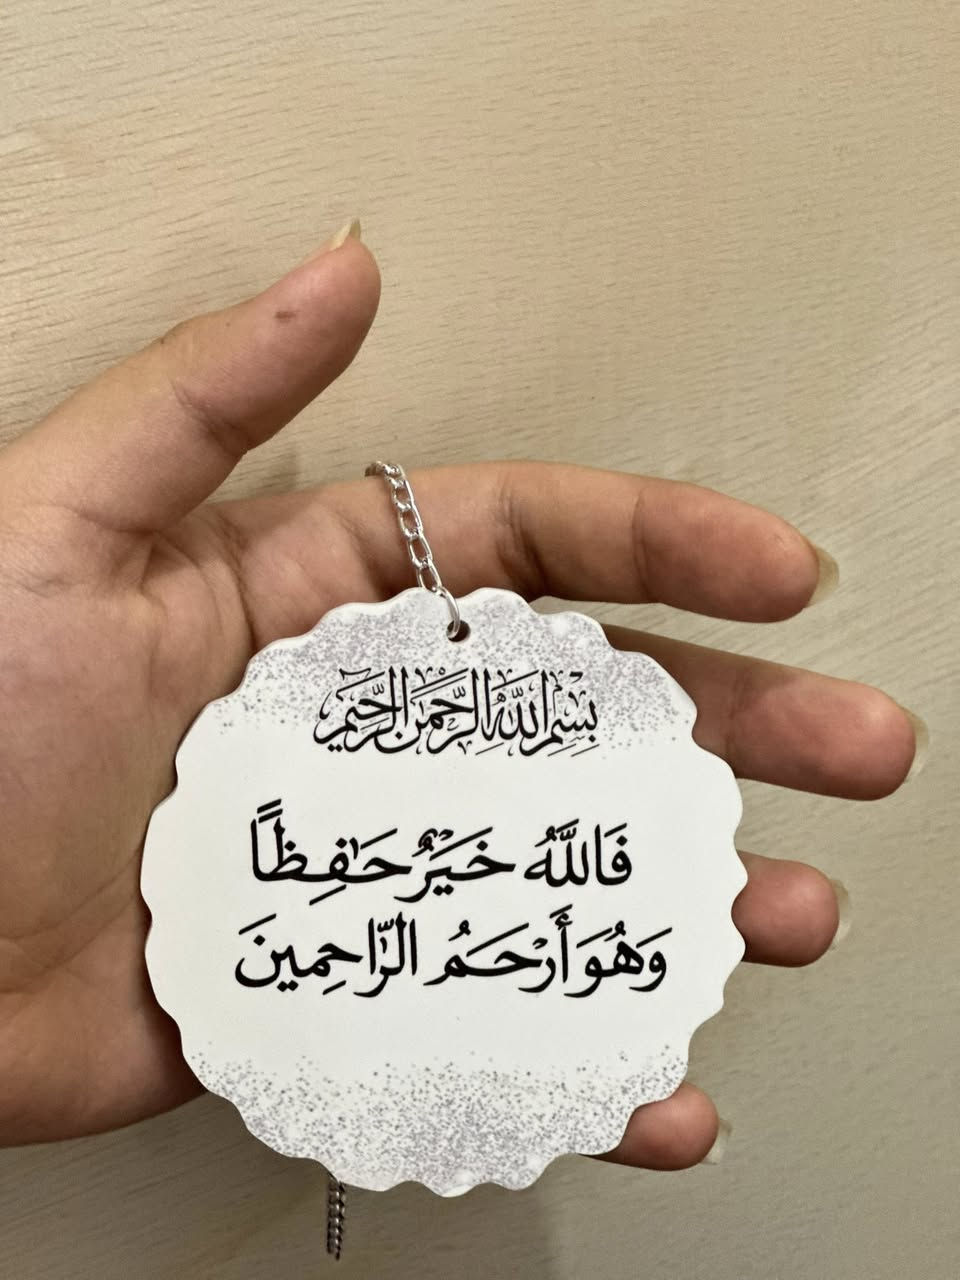 بِسْمِ اللَّهِ الرَّحْمَٰنِ الرَّحِيمِ
فَاللَّهُ خَيْرٌ حَٰفِظًا
وَهُوَ أَرْحَمُ الرَّٰحِمِينَ